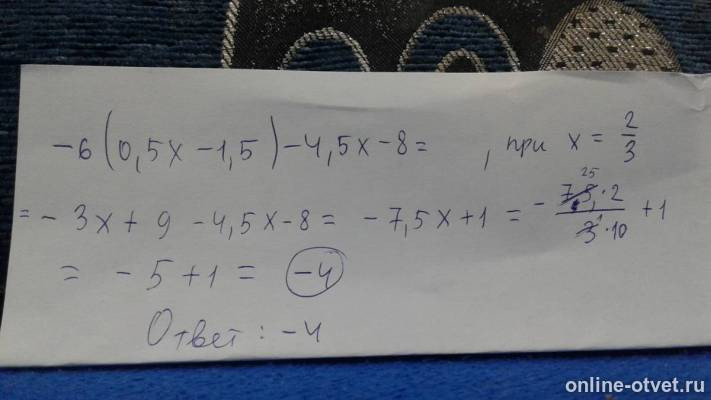 -6(0,5x-1,5)-4,5x-8= , при x = 2/3
= -3x+9-4,5x-8= -7,5x+1 = - 75·2/3·10 +1
25 1
= -5+1 = -4
Ответ: -4
online-otvet.ru